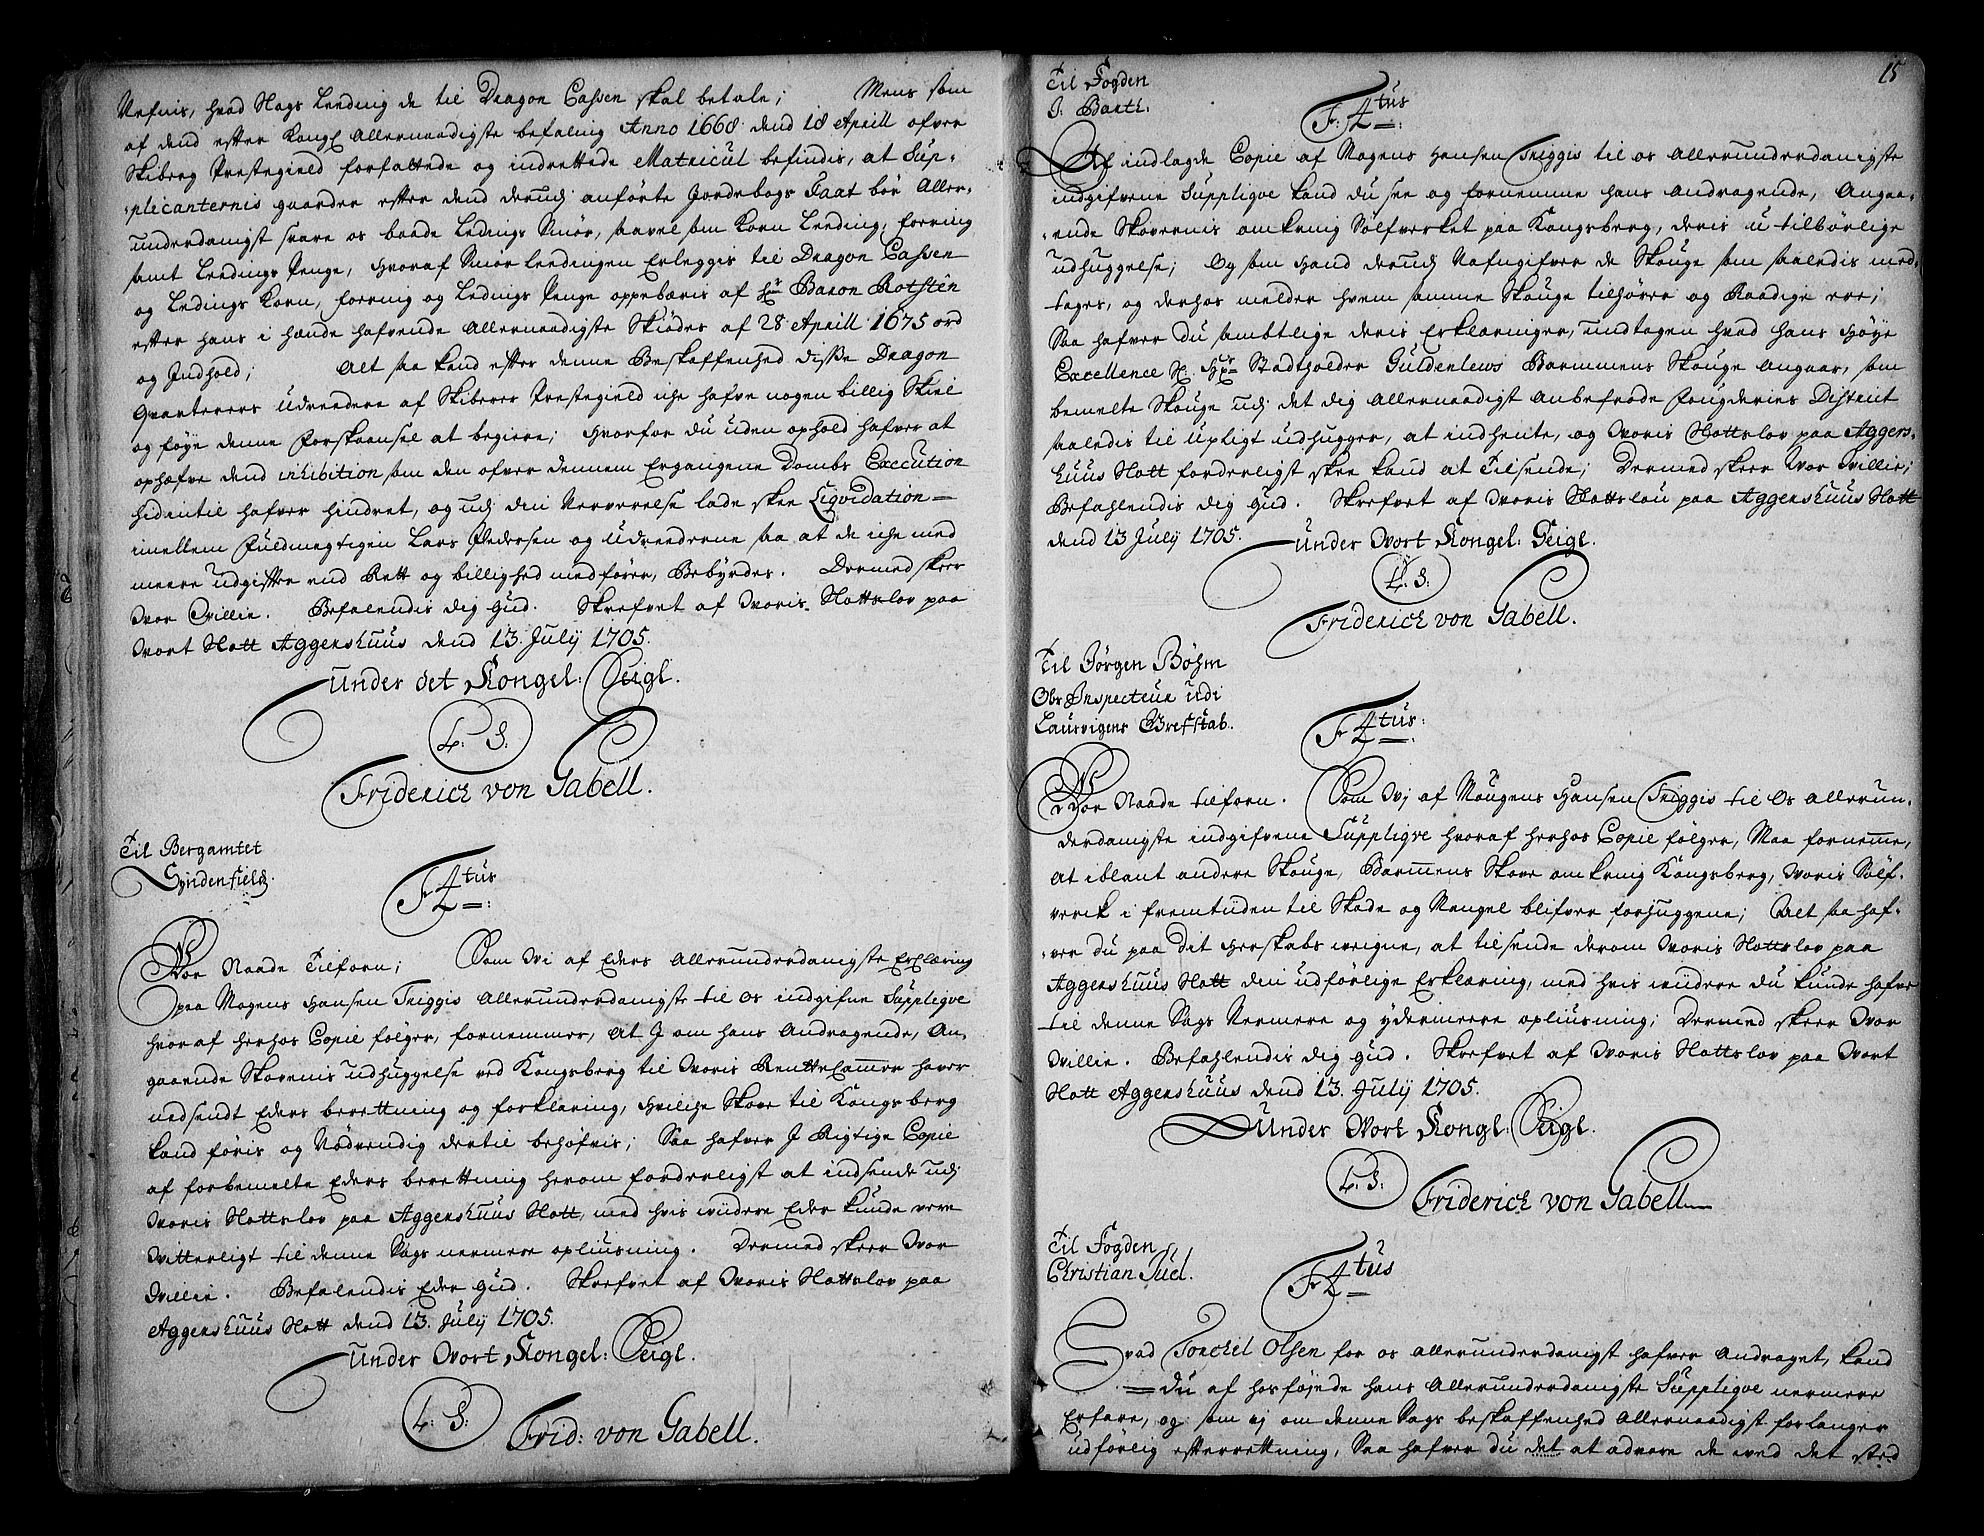 Nefnis, hvad Slags Leeding de til Dragon Cassen skal betale; Mens som
af dend efter Kongl Allernaadigste befaling Anno 1668 dend 18 Aprill ofver
Skiberg Prestegield forfattede og indrettede Matricul befindis, at Sup-
plicanternis gaarder efter dend derudj anförte Jordebogs Taxt bör Aller-
underdanigst svare os baade Ledings Smör, saavel som Korn Leeding, foering
samt Leedings Penge, hvoraf Smör Leedingen Erleggis til Dragon Cassen
og Ledings Korn, foering og Ledings Penge oppebæris af Hr Baron Rotsten
efter hans i hænde hafvende Allernaadigste Skiödes af 28 Aprill 1675 ord
og Indhold; Alt saa kand efter denne Beskaffenhed disse Dragon
Qvarterers Udreedere af Skiberg Prestegield iche hafve nogen billig Skiel
og föye denne Forskaansel at begiere; Hvorfor du uden ophold hafver at
ophæfve dend inhibition som den ofver dennem Ergangene Dombs Execution
hidentil hafver hindret, og udj din Nerverelse lade skee Liqvidation
imellem Fuldmegtigen Lars Pedersen og Udreederne saa at de iche med
meere udgifter end Rett og billighed medförer, Bebyrdes. Dermed skeer
Vor Villie. Befalendis dig Gud. Skrefvet af Voris Slottslov paa
Vort Slott Aggershuus dend 13. July 1705.
Under det Kongel: Seigl.
L. S:
Friderich von Gabell.
Til Bergamtet
Syndenfields.
F 4tus
Vor Naade Tilforn; Som Vi af Eders Allerunderdanigste Erclæring
paa Mogens Hansen Triggis Allerunderdanigste til Os indgifne Suppliqve
hvoraf herhos Copie fölger, fornemmer, At I om hans Andragende, An-
gaaende Skovenis udhuggelse ved Kongsberg til Voris Rentte Cammer haver
nedsendt Eders berettning og forklaring, hvilche Skove til Kongsberg
kand föris og Nödvendig dertil behöfvis; Saa hafver I Rigtige Copie
af forbemelte Eders berettning herom forderligst at indsende udj
Voris Slottslov paa Aggershuus Slott, med hvis viidere Eder kunde vere
Vitterligt til denne Sags nermere opliusning. Dermed skeer Vor
Villie. Befalendis Eder Gud. Skrefvet af Voris Slottslov paa
Aggershuus Slott dend 13. July 1705.
Under Vort Kongel: Seigl.
L: S:
Frid: von Gabell.
15
Til Fogden
J: Barth:
F: 4tus
Af indlagde Copie af Mogens Hansen Triggis til os Allerunderdanigste
indgifvene Suppliqve kand du see og fornemme hans Andragende, Angaa-
ende Skovernis omkring Sölfverket paa Kongsberg, deris u-tilbörlige
udhuggelse; Og som Hand derudj Nafngifver de Skouge som saaledis med-
tages, og derhos melder hvem samme Skouge tilhörer og Raadige ere;
Saa hafver du sambtlige deris Erklæringer, undtagen hvad hans Höye
Excellence Hr. Stadtholder Guldenlews Barmmens Skouge Angaar, som
bemelte Skouge udj det dig Allernaadigst Anbefrode Fougderies District
saaledis til Upligt udhugger, at indhente, og Voris Slottslov paa Aggers-
huus Slott forderligst skee kand at Tilsende; Dermed skeer Vor Villie;
Befahlendis dig Gud. Skrefvet af Voris Slottslou paa Aggershuus Slott
dend 13 July 1705.
Under Vort Kongel: Seigl.
L. S:
Friderich von Gabell.
Til Jörgen Böhm
Obr Inspecteur udi
Laurvigens Grefskab.
F 4tus:
Vor Naade tilforn. Som Vj af Mougens Hansen Triggis til Os Allerun-
derdanigste indgifvene Suppliqve hvoraf herhos Copie fölger, Maa fornemme,
At iblant andere Skouge, Barmmens Skove omkring Kongsberg, Voris Sölf-
verck i fremtiiden til Skade og Mangel blifver forhuggene; Alt saa haf-
ver du paa dit Herskabs veigne, at tilsende derom Voris Slottslov paa
Aggershuus Slott din udförlige Erklæring, med hvis viidere du kunde hafve
til denne Sags Nermere og ydermeere opliusning; Dermed skeer Vor
Villie. Befahlendis dig Gud. Skrefvet af Voris Slottslov paa Vort
Slott Aggershuus dend 13. July 1705.
Under Vort Kongl: Seigl.
L. S:
Friderich von Gabell
Til Fogden
Christian Juel.
F 4tus
Hvad Torchel Olsen for os allerunderdanigst hafver Andraget, kand
du af hosföjede hans Allerunderdanigste Suppliqve nermere
Erfare, og som vj om denne Sags beskaffenhed Allernaadigst forlanger
udförlig efterrettning, Saa hafver du det at advare de ved det sted